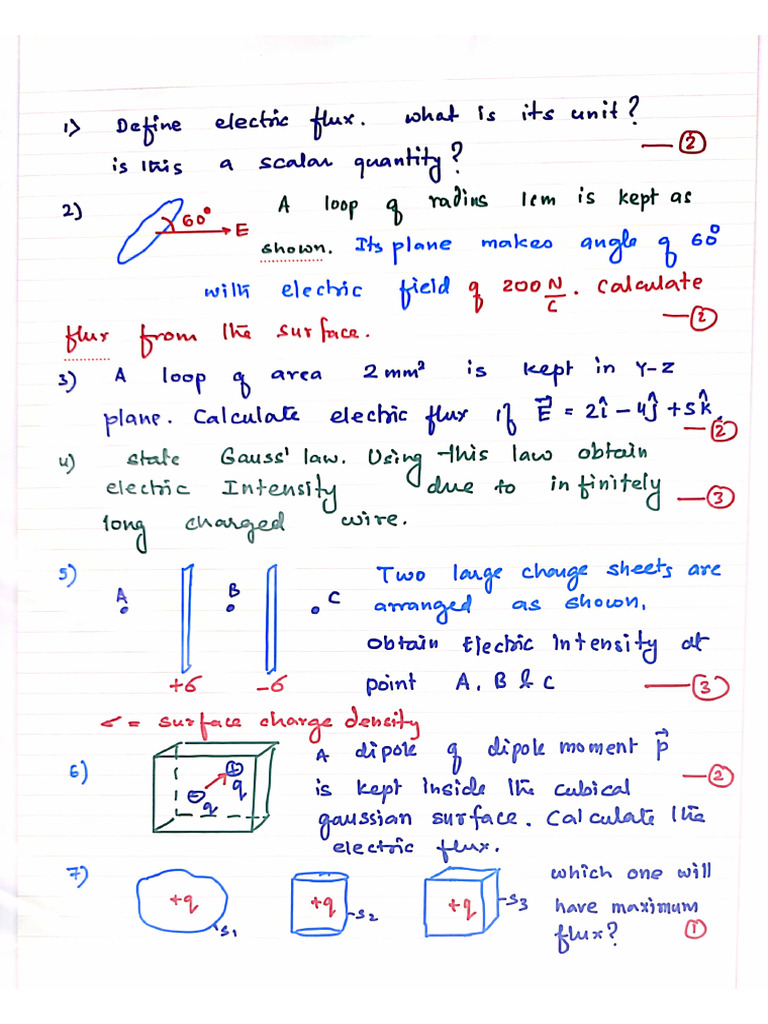 1) Define electric flux. what is its unit?
is this a scalar quantity? — 2
2) 60° E A loop of radius 1cm is kept as
shown. Its plane makes angle of 60°
with electric field of 200 N/C. Calculate
flux from the surface. — 2
3) A loop of area 2mm² is kept in Y-Z
plane. Calculate electric flux if E⃗ = 2î - 4ĵ + 5k̂. — 2
4) state Gauss' law. Using this law obtain
electric Intensity due to infinitely — 3
long charged wire.
5) Two large charge sheets are
A B C arranged as shown.
obtain Electric Intensity at
+σ -σ point A, B & C — 3
σ = surface charge density
6) A dipole of dipole moment p⃗
- + q q is kept inside the cubical — 2
gaussian surface. Calculate the
electric flux.
7) which one will
+q S1 +q S2 +q S3 have maximum
flux? 1